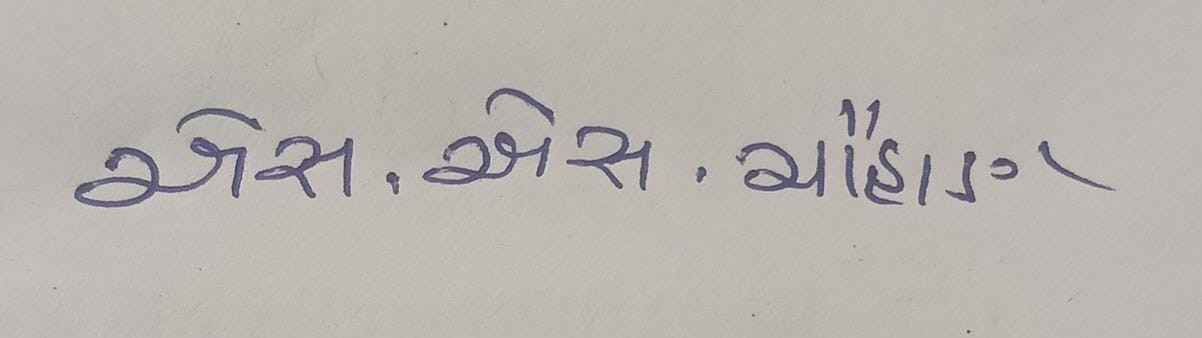 એસ. એસ. ચૌહાણ